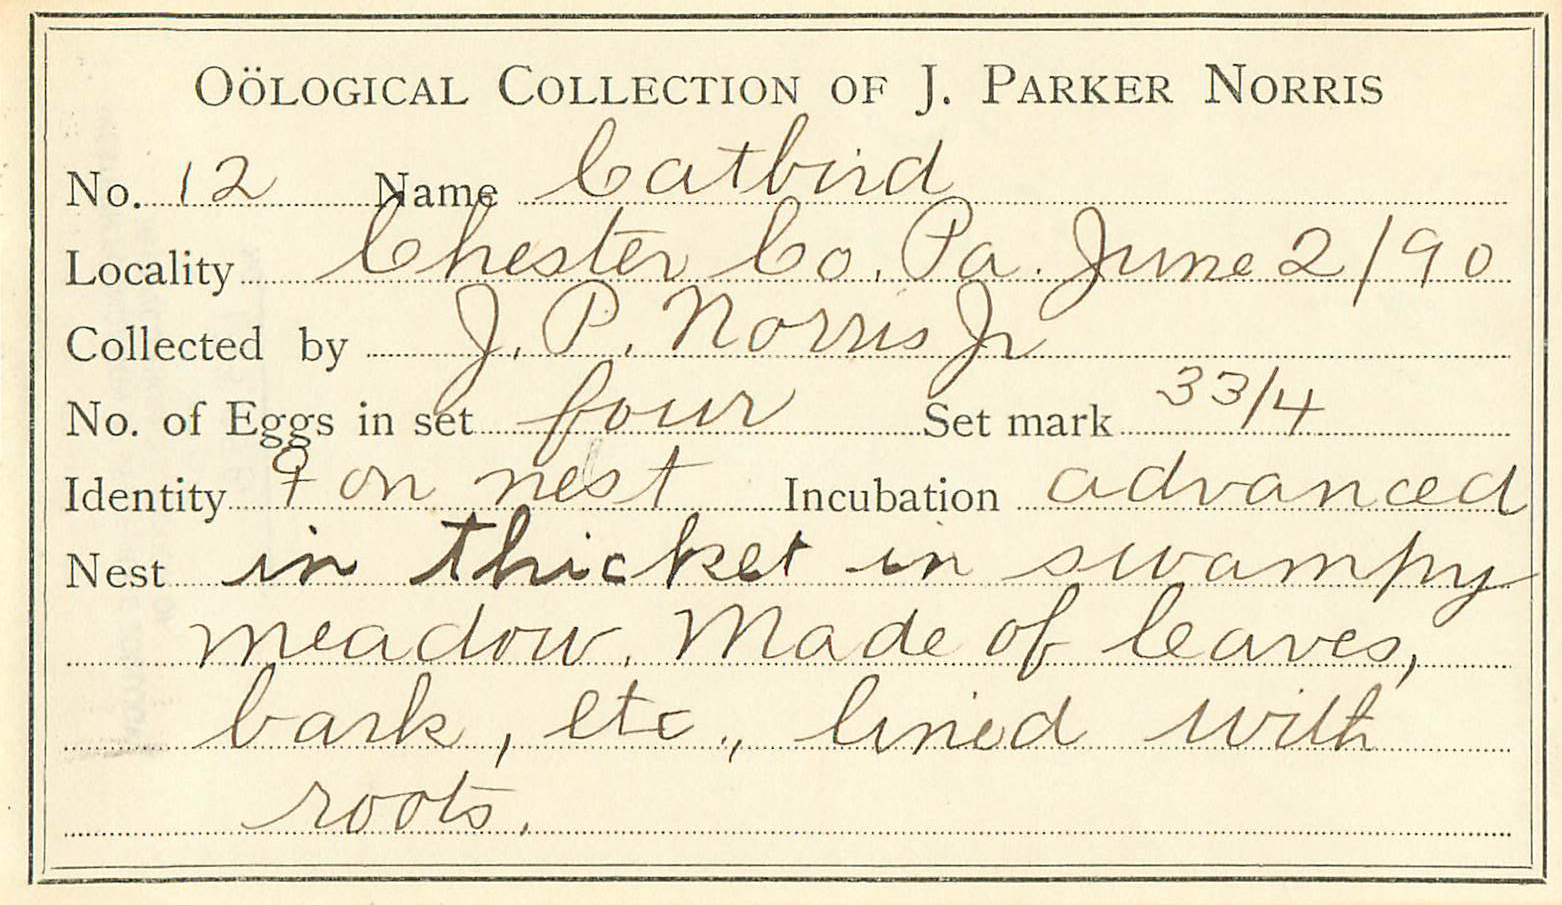 OÖLOGICAL COLLECTION OF J. PARKER NORRIS
No. 12 Name Catbird
Locality Chester Co. Pa. June 2/90
Collected by J. P. Norris Jr
No. of Eggs in set four Set mark 33/4
Identity ♀ on nest Incubation advanced
Nest in thicket in swampy
meadow. Made of leaves,
bark, etc., lined with
roots.